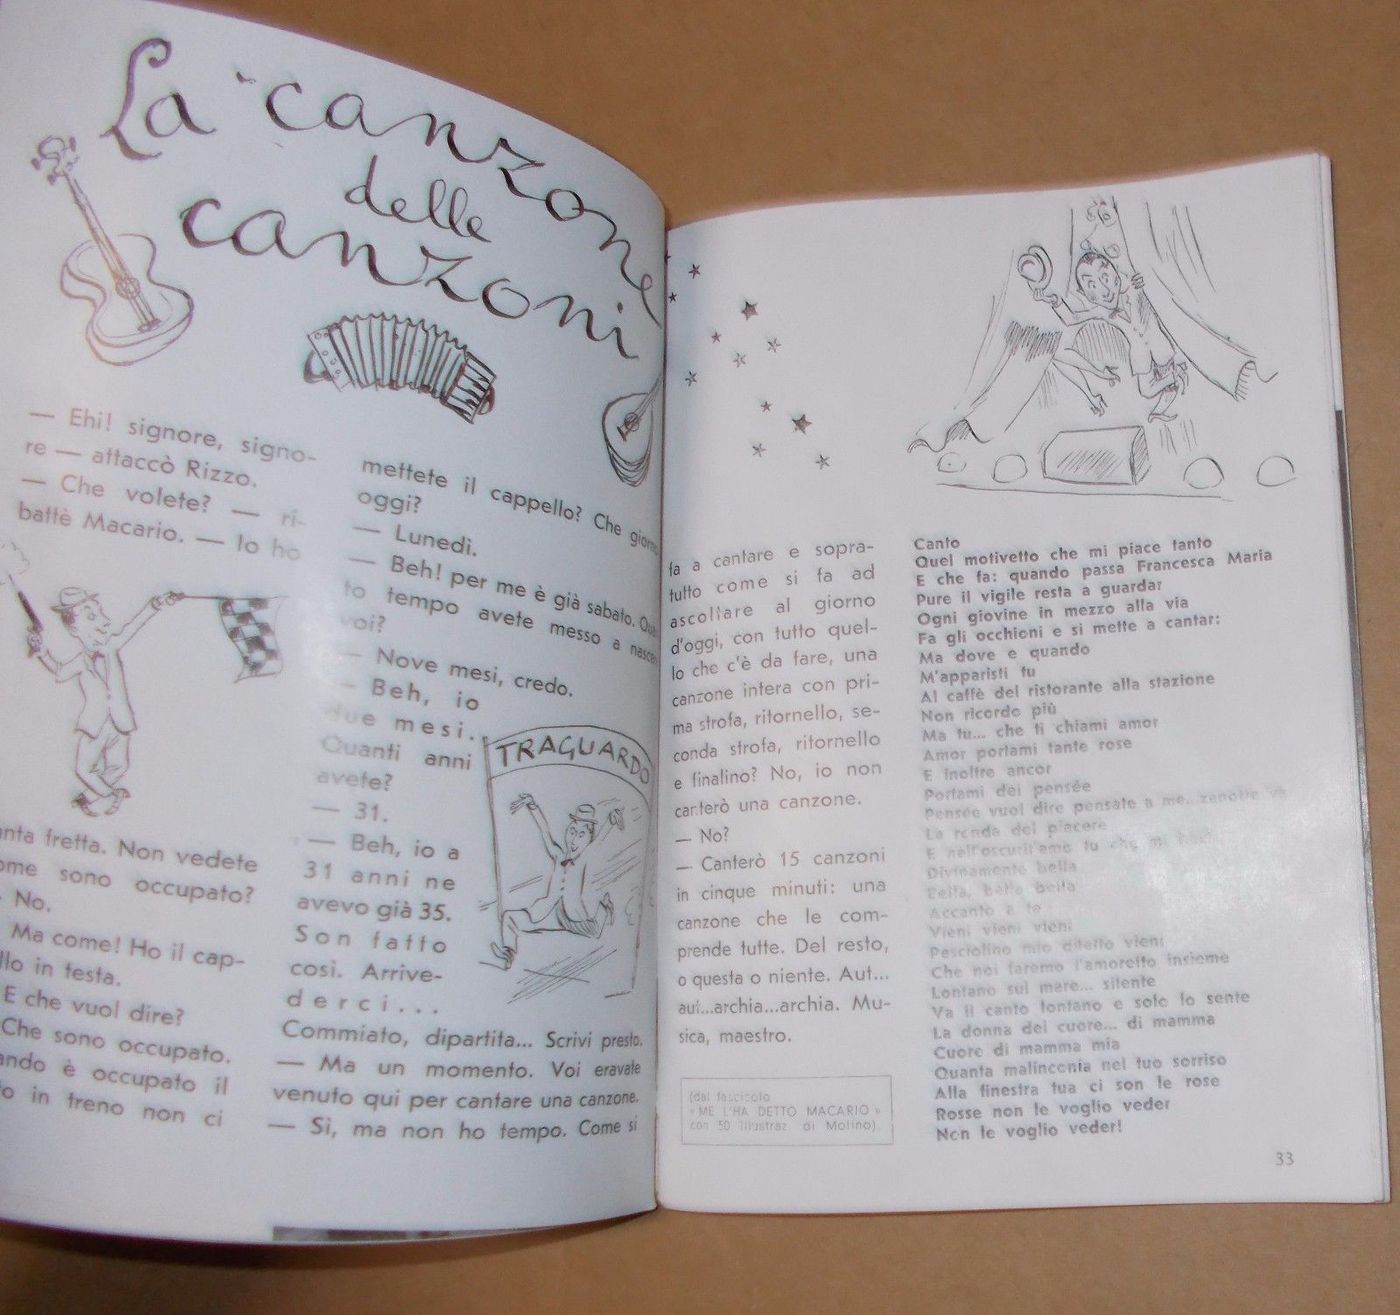 La canzone
delle
canzoni
— Ehi! signore, signo-
re — attaccò Rizzo.
— Che volete? — ri-
battè Macario. — Io ho
fretta. Non vedete
sono occupato?
No.
Ma come! Ho il cap-
in testa.
E che vuol dire?
Che sono occupato.
è occupato il
in treno non ci
mettete il cappello? Che giorno
oggi?
— Lunedì.
— Beh! per me è già sabato.
to tempo avete messo a
voi?
— Nove mesi, credo.
— Beh, io
due mesi.
Quanti anni
avete?
— 31.
— Beh, io a
31 anni ne
avevo già 35.
Son fatto
così. Arrive-
derci...
Commiato, dipartita... Scrivi presto.
— Ma un momento. Voi eravate
venuto qui per cantare una canzone.
— Sì, ma non ho tempo. Come si
TRAGUARDO
fa a cantare e sopra-
tutto come si fa ad
ascoltare al giorno
d'oggi, con tutto quel-
lo che c'è da fare, una
canzone intera con pri-
ma strofa, ritornello, se-
conda strofa, ritornello
e finalino? No, io non
canterò una canzone.
— No?
— Canterò 15 canzoni
in cinque minuti: una
canzone che le com-
prende tutte. Del resto,
o questa o niente. Aut...
aut...archia...archia. Mu-
sica, maestro.
(dal fascicolo
« ME L'HA DETTO MACARIO »
con 50 illustraz. di Molino).
Canto
Quel motivetto che mi piace tanto
E che fa: quando passa Francesca Maria
Pure il vigile resta a guardar
Ogni giovine in mezzo alla via
Fa gli occhioni e si mette a cantar:
Ma dove e quando
M'apparisti tu
Al caffè del ristorante alla stazione
Non ricordo più
Ma tu... che ti chiami amor
Amor portami tante rose
E inoltre ancor
Portami dei pensée
Pensée vuol dire pensate a me..
La ronda del piacere
E nell'oscurit'amo tu che mi
Divinamente bella
Bella, bella bella
Accanto a te
Vieni vieni vieni
Pesciolino mio diletto vieni
Che noi faremo l'amoretto insieme
Lontano sul mare... silente
Va il canto lontano e solo lo sente
La donna del cuore... di mamma
Cuore di mamma mia
Quanta malinconia nel tuo sorriso
Alla finestra tua ci son le rose
Rosse non le voglio veder
Non le voglio veder!
33